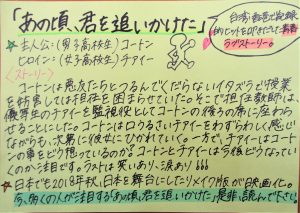 「あの頃、君を追いかけた」
台湾で映画が記録
的ヒットとなった青春
ラブストーリー。
☆主人公:(男子高校生)コートン
ヒロイン:(女子高校生)チアイー
〈ストーリー〉
コートンは悪友たちとつるんでくだらないイタズラで授業
を妨害しては担任を困らせていた。そこで担任教師は、
優等生のチアイーを監視役としてコートンの後ろの席に座わら
せることにした。コートンは口うるさいチアイーをわずらわしく感じ
ながらも、次第に彼女にひかれていく。一方で、チアイーはコート
ンの事をどう想っているのか?コートンとチアイーは今後どうなっていく
のかが注目です。ラストは笑いあり、涙あり
☆日本でも2018年秋、日本を舞台にしたリメイク版が映画化。
今、多くの人が注目する「あの頃、君を追いかけた」是非読んで下さい。